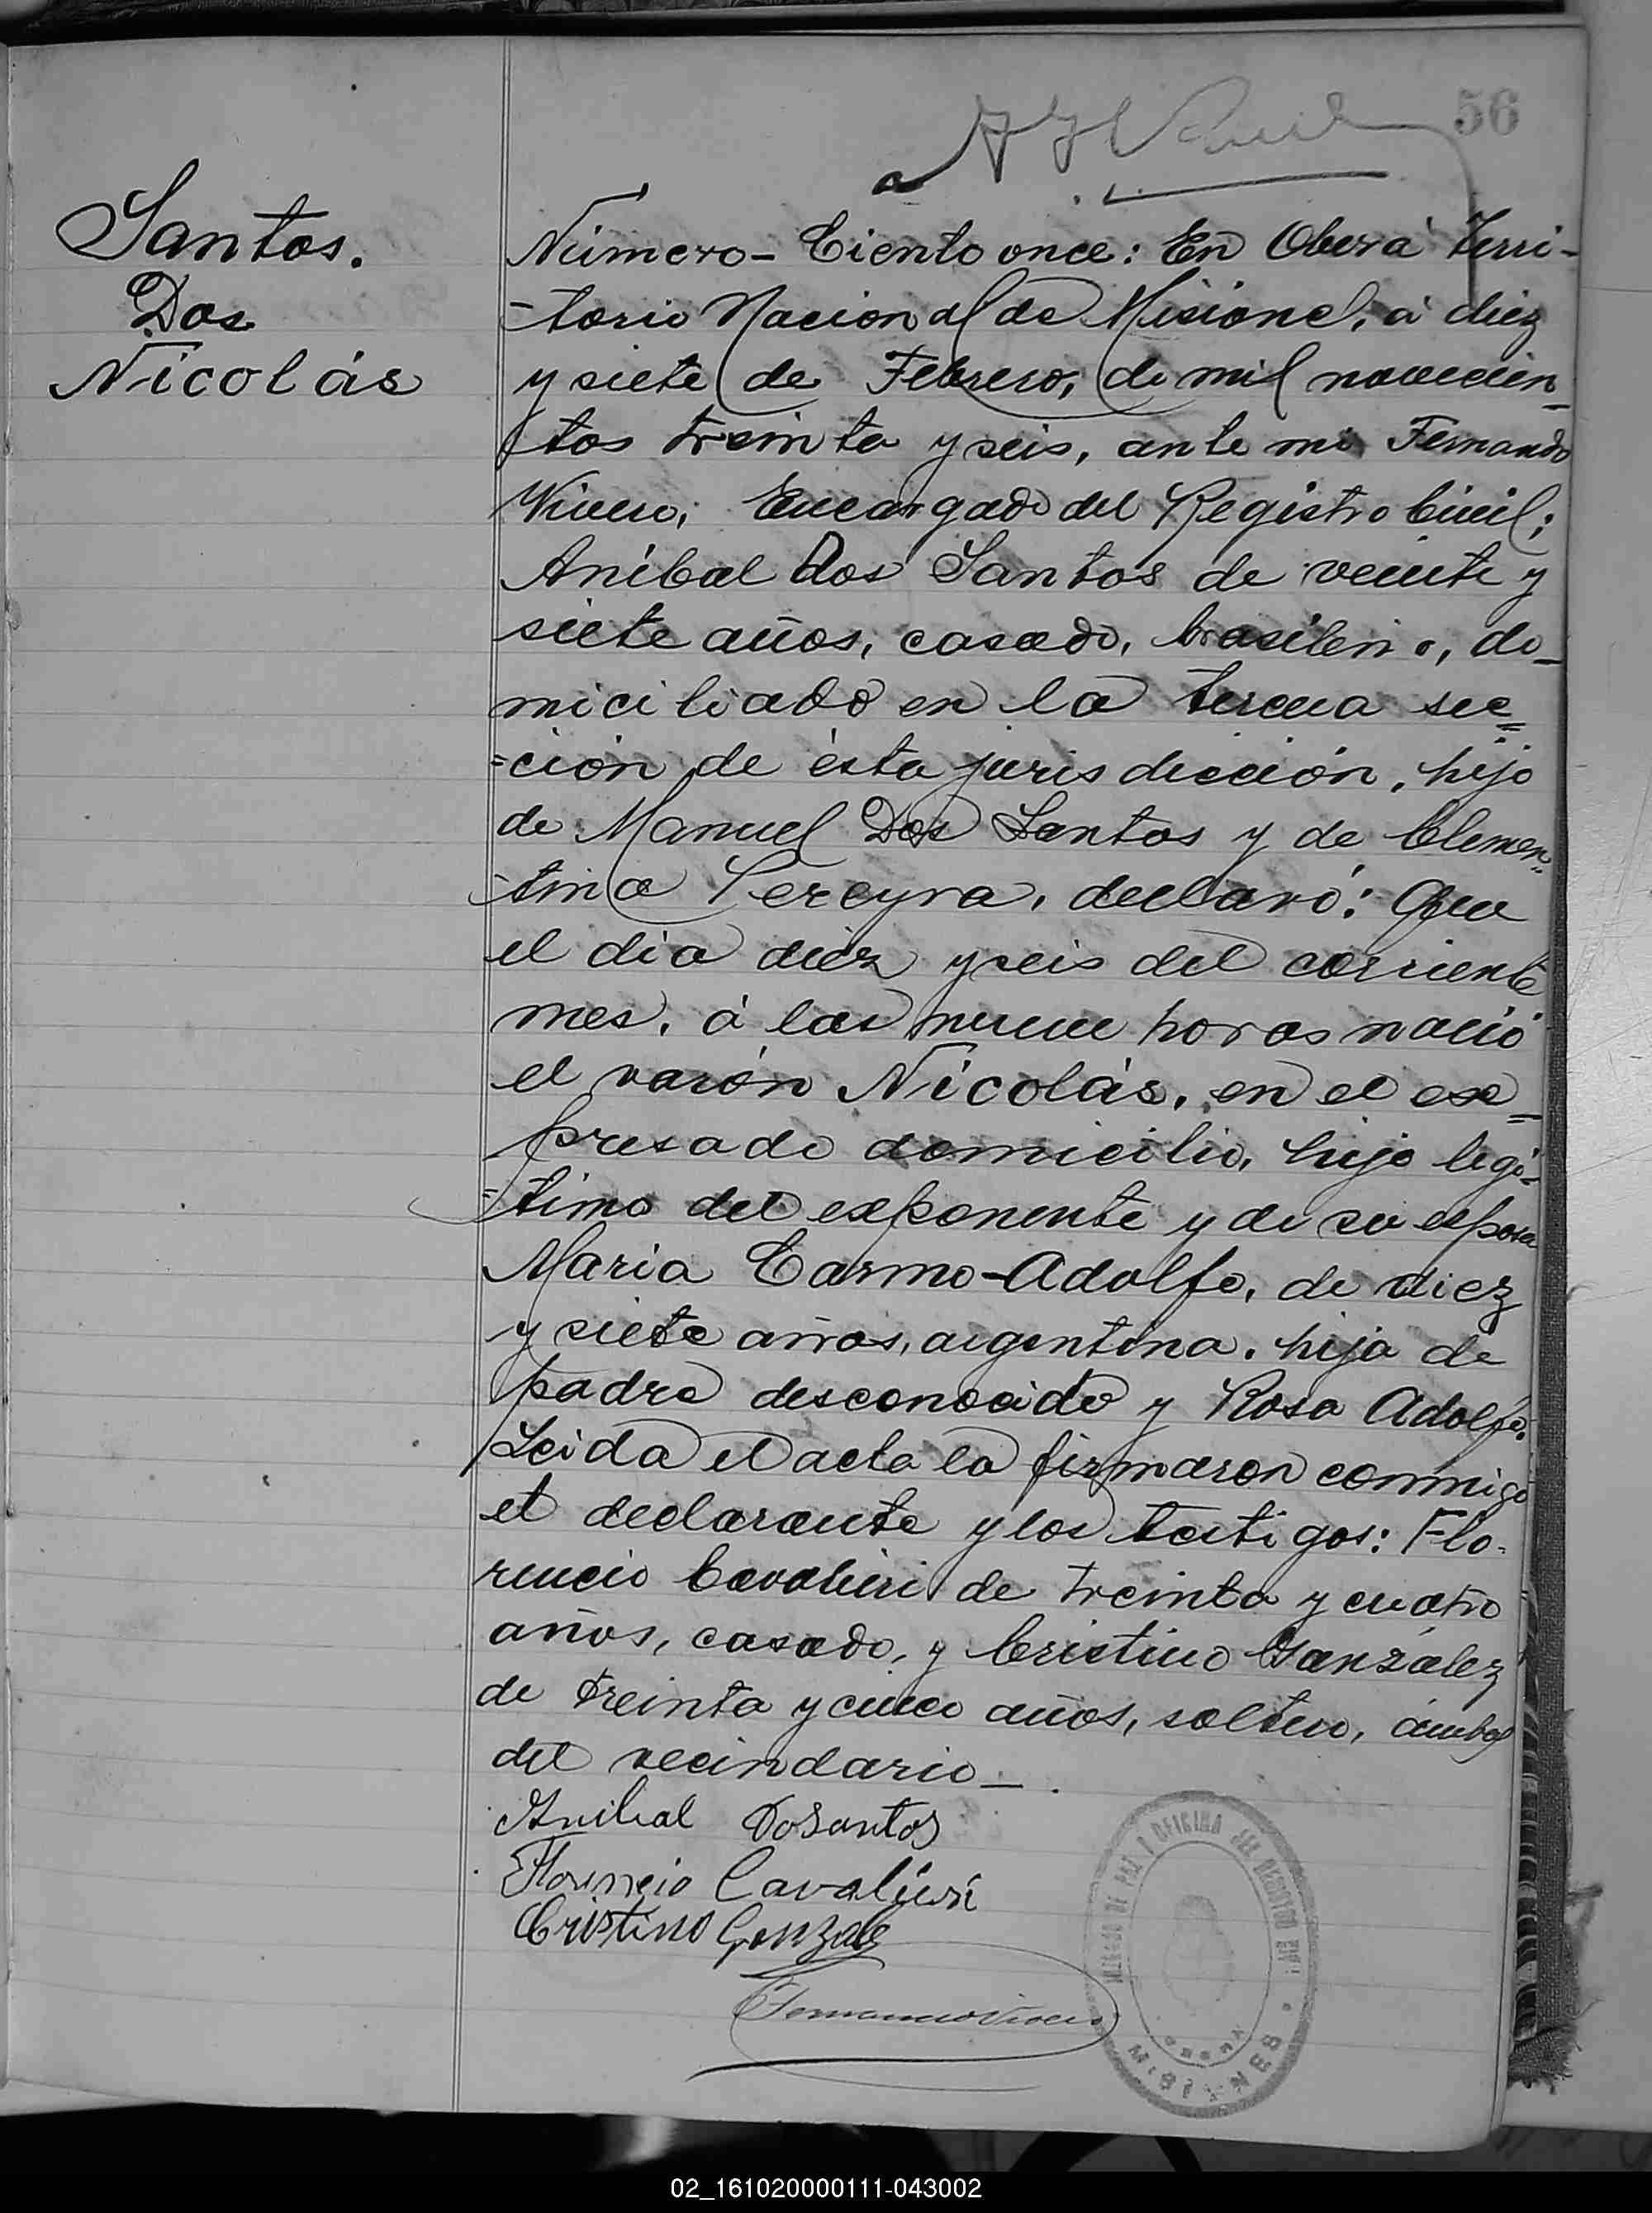 56
Santos.
Dos
Nicolás
Número - Ciento once: En Oberá Terri-
-torio Nacional de Misiones, á diez
y siete de Febrero, de mil novecien-
tos treinta y seis, ante mi Fernando
Encargado del Registro Civil;
Aníbal Dos Santos de veinte y
siete años, casado, brasileño, do-
miciliado en la tercera sec=
=ción de ésta jurisdicción, hijo
de Manuel Dos Santos y de Clemen=
-tina Pereyra, declaró: Que
el día diez y seis del corriente
mes, á las nueve horas nació
el varón Nicolás, en el ex=
presado domicilio, hijo legí=
=timo del exponente y de su esposa
Maria Carmo-Adolfo, de diez
y siete años, argentina, hija de
padre desconocido y Rosa Adolfo.
Leida el acta la firmaron conmigo
el declarante y los testigos: Flo-
rencio Cavalieri de treinta y cuatro
años, casado, y Cristino González
de treinta y cinco años, soltero, ámbos
del vecindario —.
Anibal DoSantos
Florencio Cavalieri
Cristino Gonzalez
JUZGADO DE PAZ Y OFICINA DEL REGISTRO CIVIL
MISIONES
02_161020000111-043002